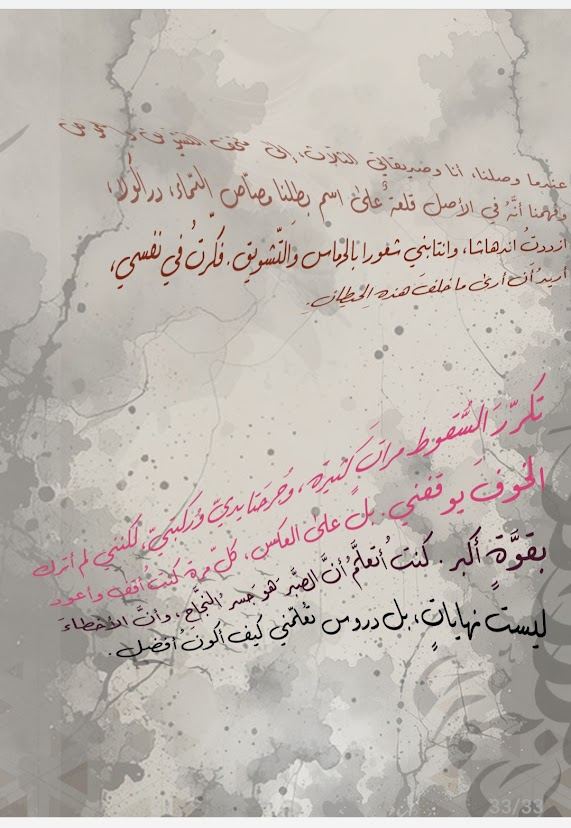 عندما وصلنا، أنا وصديقاتي الثلاث، إلى
وفهمنا أنَّهُ في الأصل قلعة على اسم بطلنا مصّاص الدّماء، دراكُولا،
ازددتُ اندهاشا، وانتابني شعورا بالحماس وَالتّشويق. فكّرتُ في نفسي،
أريدُ أن أرى ما خلفَ هذه الحيطان.
تكرّرَ السُّقوط مراتٍ كثيرة، وجُرحتا يديّ وَركبتيّ، لكنني لم أترك
الخوفَ يوقفني. بل على العكس، كلّ مرة كنتُ أقف وأعود
بقوَّةٍ أكبر. كنتُ أتعلَّمُ أنَّ الصَّبر هو جسر النَّجاح، وأنَّ الأخطاءَ
ليست نهاياتٍ، بل دروس تعلّمني كيف أكونُ أفضل.
33/33